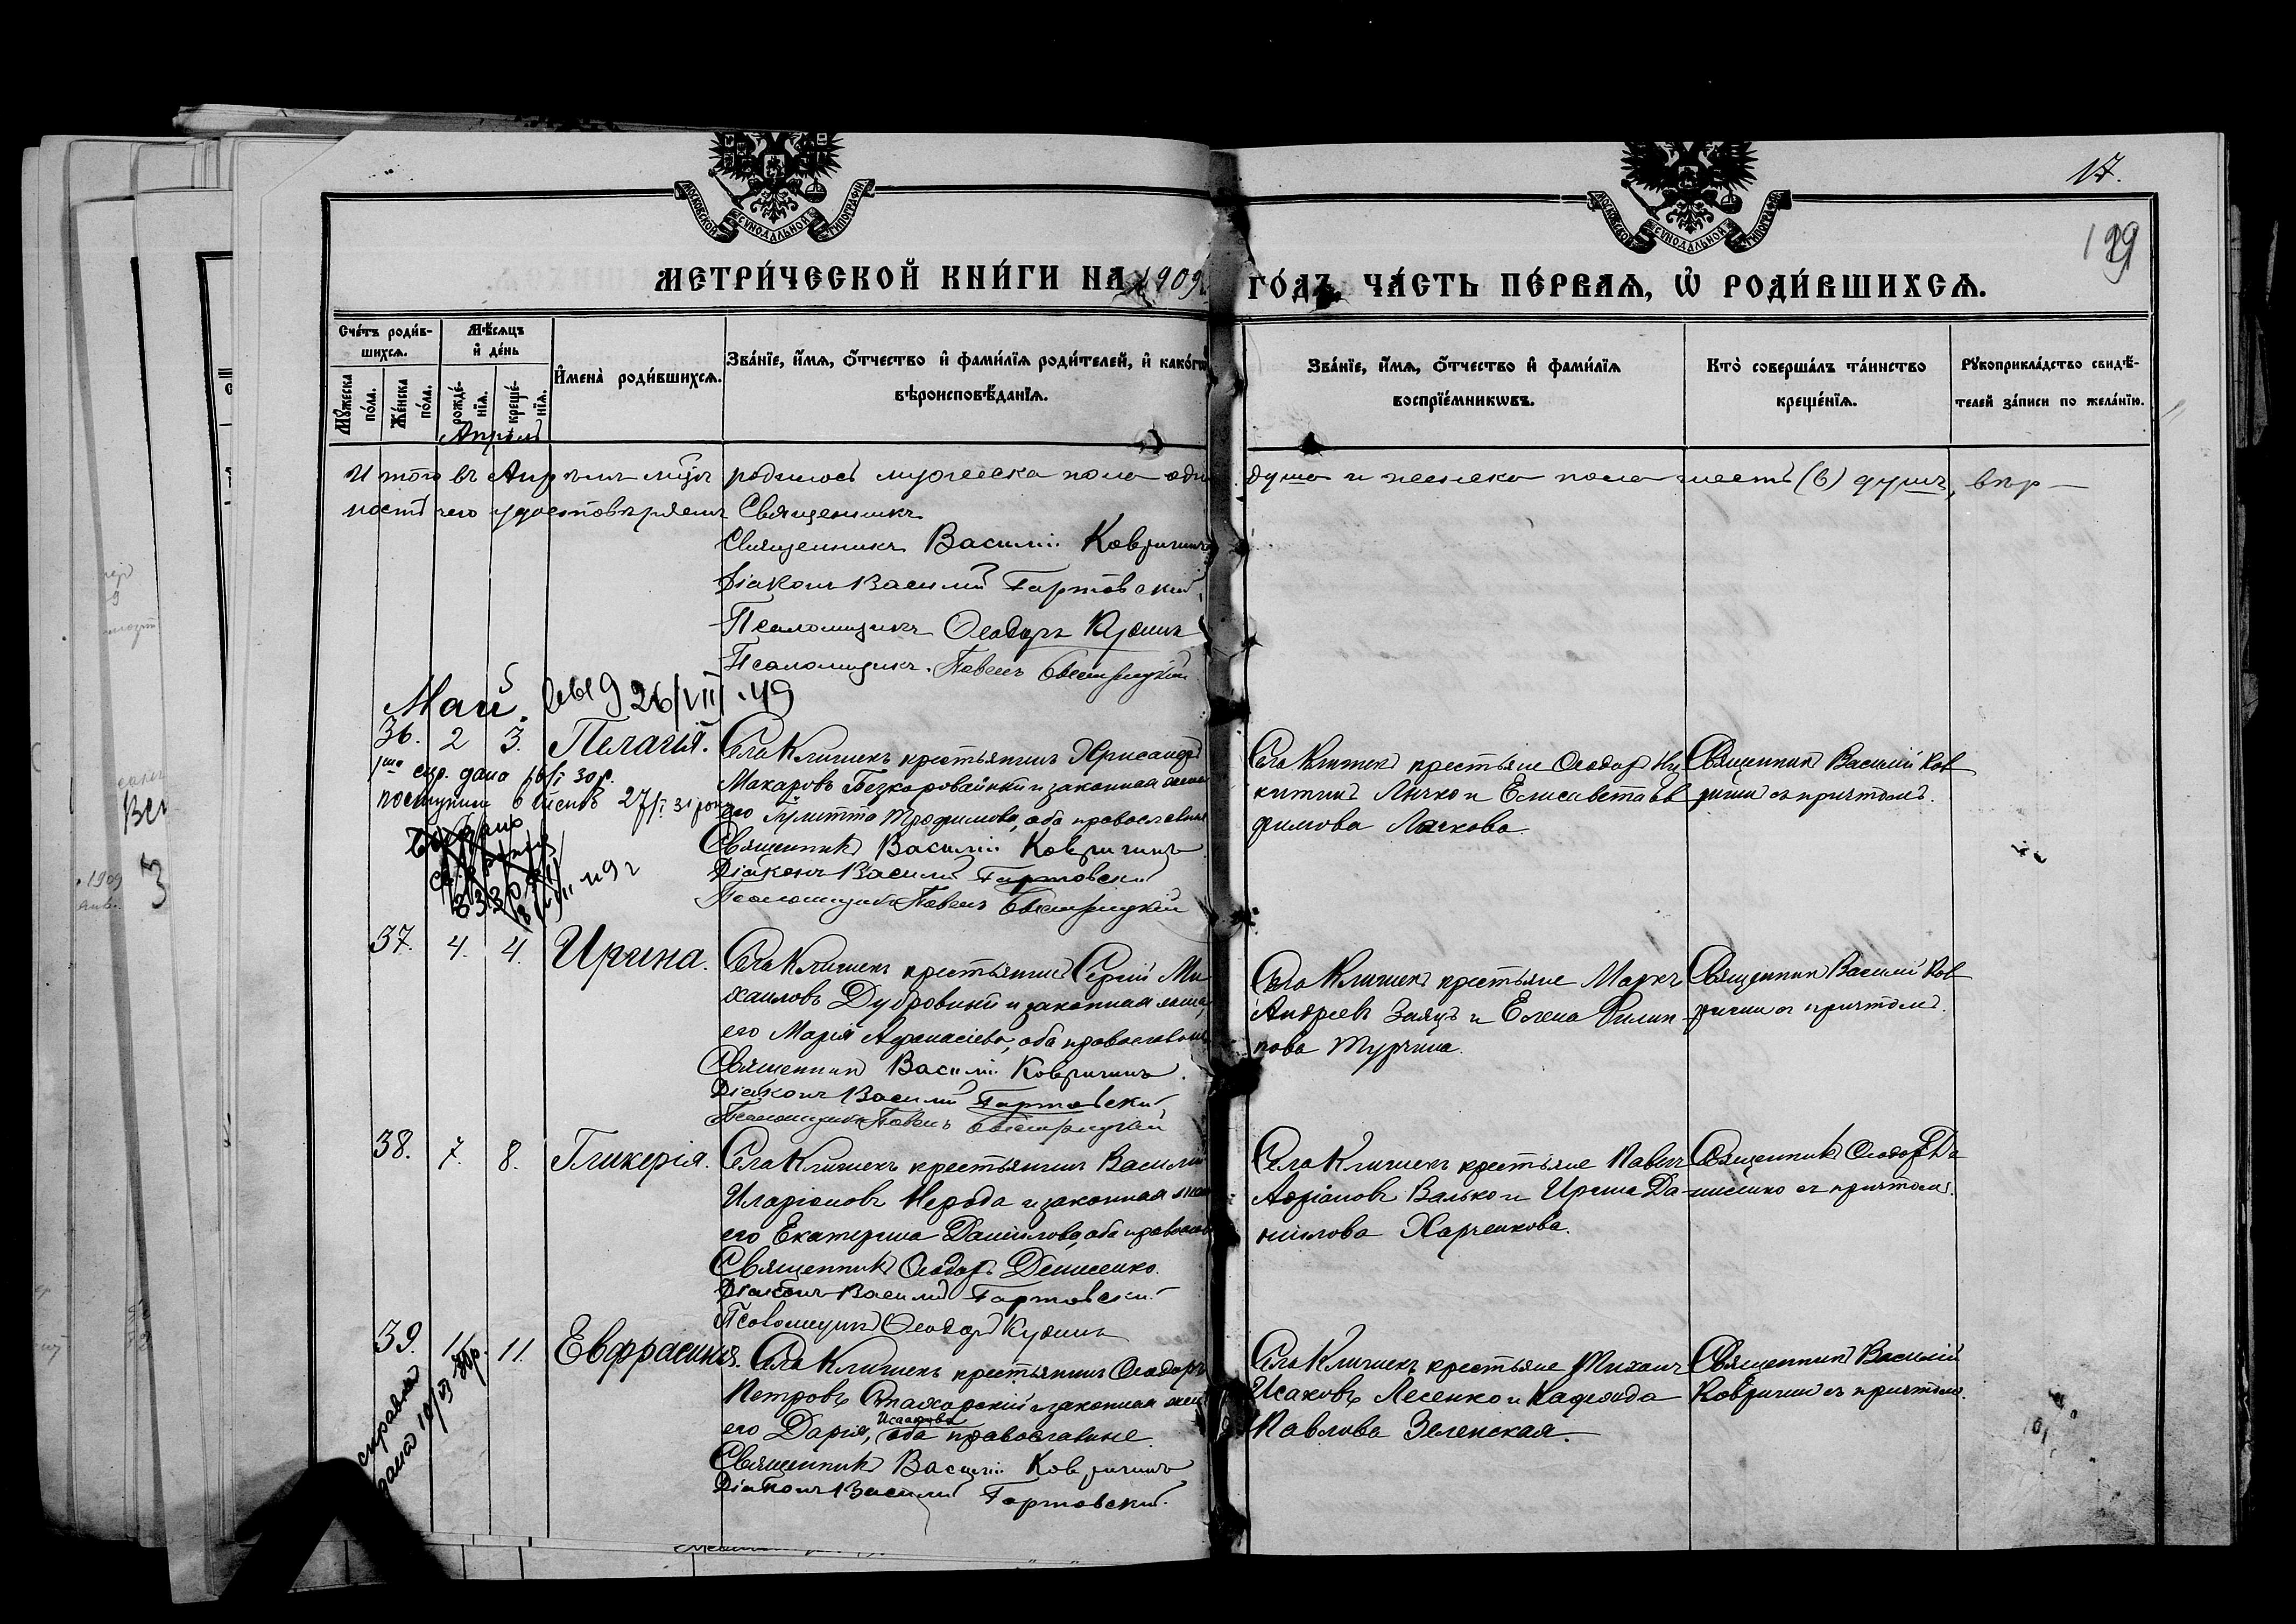 МОСКОВСКОЙ СѴНОДАЛЬНОЙ ТИПОГРАФІИ
МОСКОВСКОЙ СѴНОДАЛЬНОЙ ТИПОГРАФІИ
17.
129
МЕТРИ́ЧЕСКОЙ КНИ́ГИ НА 1909 ГО́ДЪ, ЧА́СТЬ ПЕ́РВАѦ, Ѡ҆ РОДИ́ВШИХСѦ.
Сче́тъ роди́в-
шихсѧ.
Мꙋ́жеска по́ла.
Же́нска по́ла.
Мѣ́сѧцъ
и҆ де́нь
рожде́-
нїѧ.
креще́-
нїѧ.
И҆мена̀ роди́вшихсѧ.
Зва́нїе, и҆́мѧ, ѻ҆́тчество и҆ фами́лїѧ роди́телей, и҆ како́гѡ
вѣроисповѣ́данїѧ.
Зва́нїе, и҆́мѧ, ѻ҆́тчество и҆ фами́лїѧ
воспрїе́мникѡвъ.
Кто̀ соверша́лъ та́инство
креще́нїѧ.
Рꙋкоприкла́дство свидѣ́-
телей за́писи по жела́нїю.
Апрель
Итого въ Апрѣлѣ мцѣ родилось мужеска пола одна душа и женска пола шесть (6) душъ, вѣр-
ность чего удостовѣряемъ Священникъ
Священникъ Василій Ковригинъ
Діаконъ Василій Гартовскій
Псаломщикъ Ѳеодоръ
Псаломщикъ Павелъ Быстрицкій
Май.
26/VIII 49
36. 2 3. Пелагія.
1ша спр. дана 30р.
27/I 31
49 г
Села Клишекъ крестьянинъ Хрисанфъ
Макаровъ Безкоровайный и законная жена
его Іулитта Трофимова, оба православные
Священникъ Василій Ковригинъ
Діаконъ Василій Гартовскій
Псаломщикъ Павелъ Быстрицкій
Села Клишекъ крестьяне Ѳеодоръ Ни-
китинъ Лячко и Елисавета Ев-
фимова Лячкова.
Священникъ Василій Ков-
ригинъ съ причтомъ.
37. 4. 4. Ирина.
Села Клишекъ крестьянинъ Сергій Ми-
хаиловъ Дубровный и законная жена
его Марія Афанасіева, оба православные
Священникъ Василій Ковригинъ.
Діаконъ Василій Гартовскій
Псаломщикъ Павелъ Быстрицкій
Села Клишекъ крестьяне Маркъ
Андреевъ Заяцъ и Елена Филип-
пова Турчина.
Священникъ Василій Ков-
ригинъ съ причтомъ.
38. 7. 8. Гликерія.
Села Клишекъ крестьянинъ Василій
Иларіоновъ Нерода и законная жена
его Екатерина Даниилова, оба православ
Священникъ Ѳеодоръ Денисенко.
Діаконъ Василій Гартовскій
Псаломщикъ Ѳеодоръ
Села Клишекъ крестьяне Павелъ
Адріановъ Валько и Ирина Да-
ніилова Харченкова.
Священникъ Ѳеодоръ Де-
нисенко съ причтомъ.
39. 11. 11. Евфрасинія.
справка
дана
Села Клишекъ крестьянинъ Ѳеодоръ
Петровъ и законная жена
его Дарія, Исаакова оба православные.
Священникъ Василій Ковригинъ
Діаконъ Василій Гартовскій.
Села Клишекъ крестьяне Михаилъ
Исаковъ Лесенко и
Павлова Зеленская.
Священникъ Василій
Ковригинъ съ причтомъ.